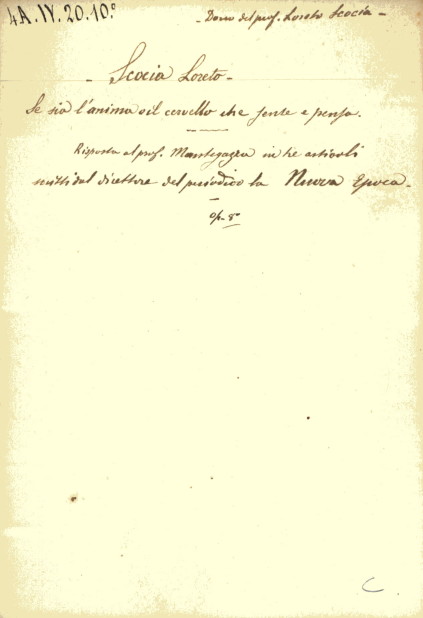 4A.IV.20.10º
- Dono del prof. Loreto Scocia -
- Scocia Loreto -
Se sia l'anima o il cervello che sente e pensa.
Risposta al prof. Mantegazza in tre articoli
scritti dal direttore del periodico la Nuova Epoca -
op. 8º
C